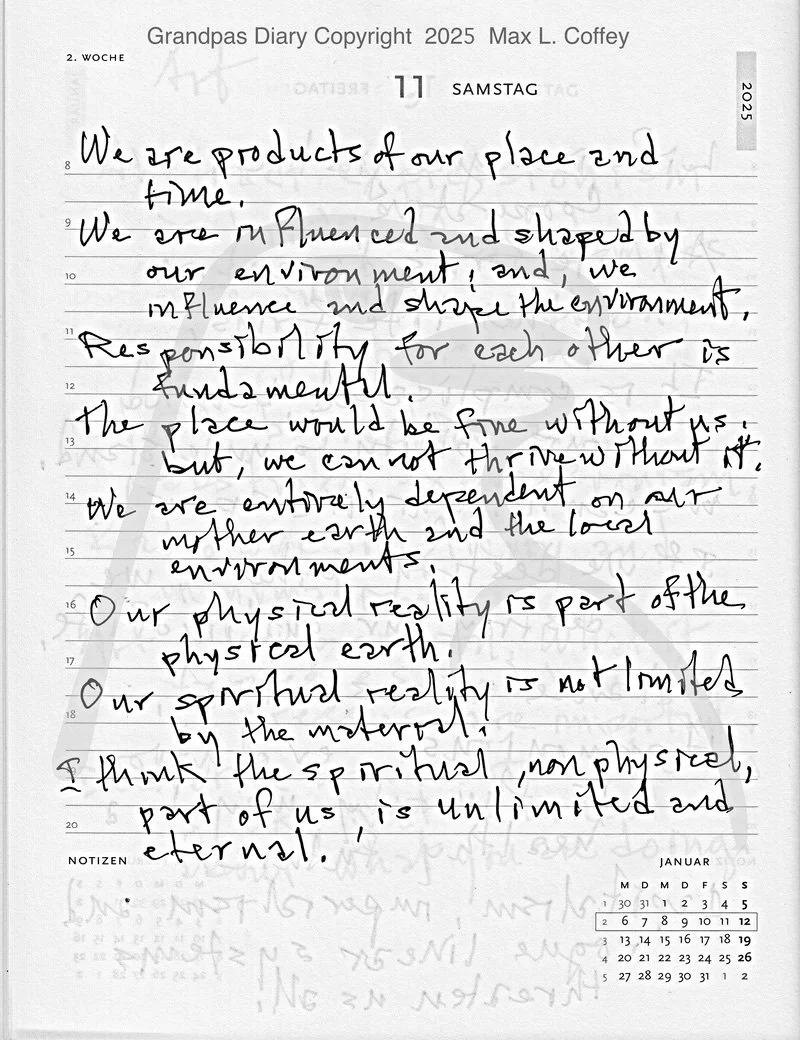 Grandpas Diary Copyright 2025 Max L. Coffey
2. WOCHE
11 SAMSTAG
2025
8 We are products of our place and
time.
9 We are influenced and shaped by
10 our environment; and, we
influence and shape the environment.
11 Responsibility for each other is
12 fundamental.
The place would be fine without us;
13 but, we can not thrive without it.
14 We are entirely dependent on our
mother earth and the local
15 environments.
16 Our physical reality is part of the
17 physical earth.
Our spiritual reality is not limited
18 by the material.
I think the spiritual, nonphysical,
part of us, is unlimited and
20 eternal.
NOTIZEN
JANUAR
M D M D F S S
1 30 31 1 2 3 4 5
2 6 7 8 9 10 11 12
3 13 14 15 16 17 18 19
4 20 21 22 23 24 25 26
5 27 28 29 30 31 1 2